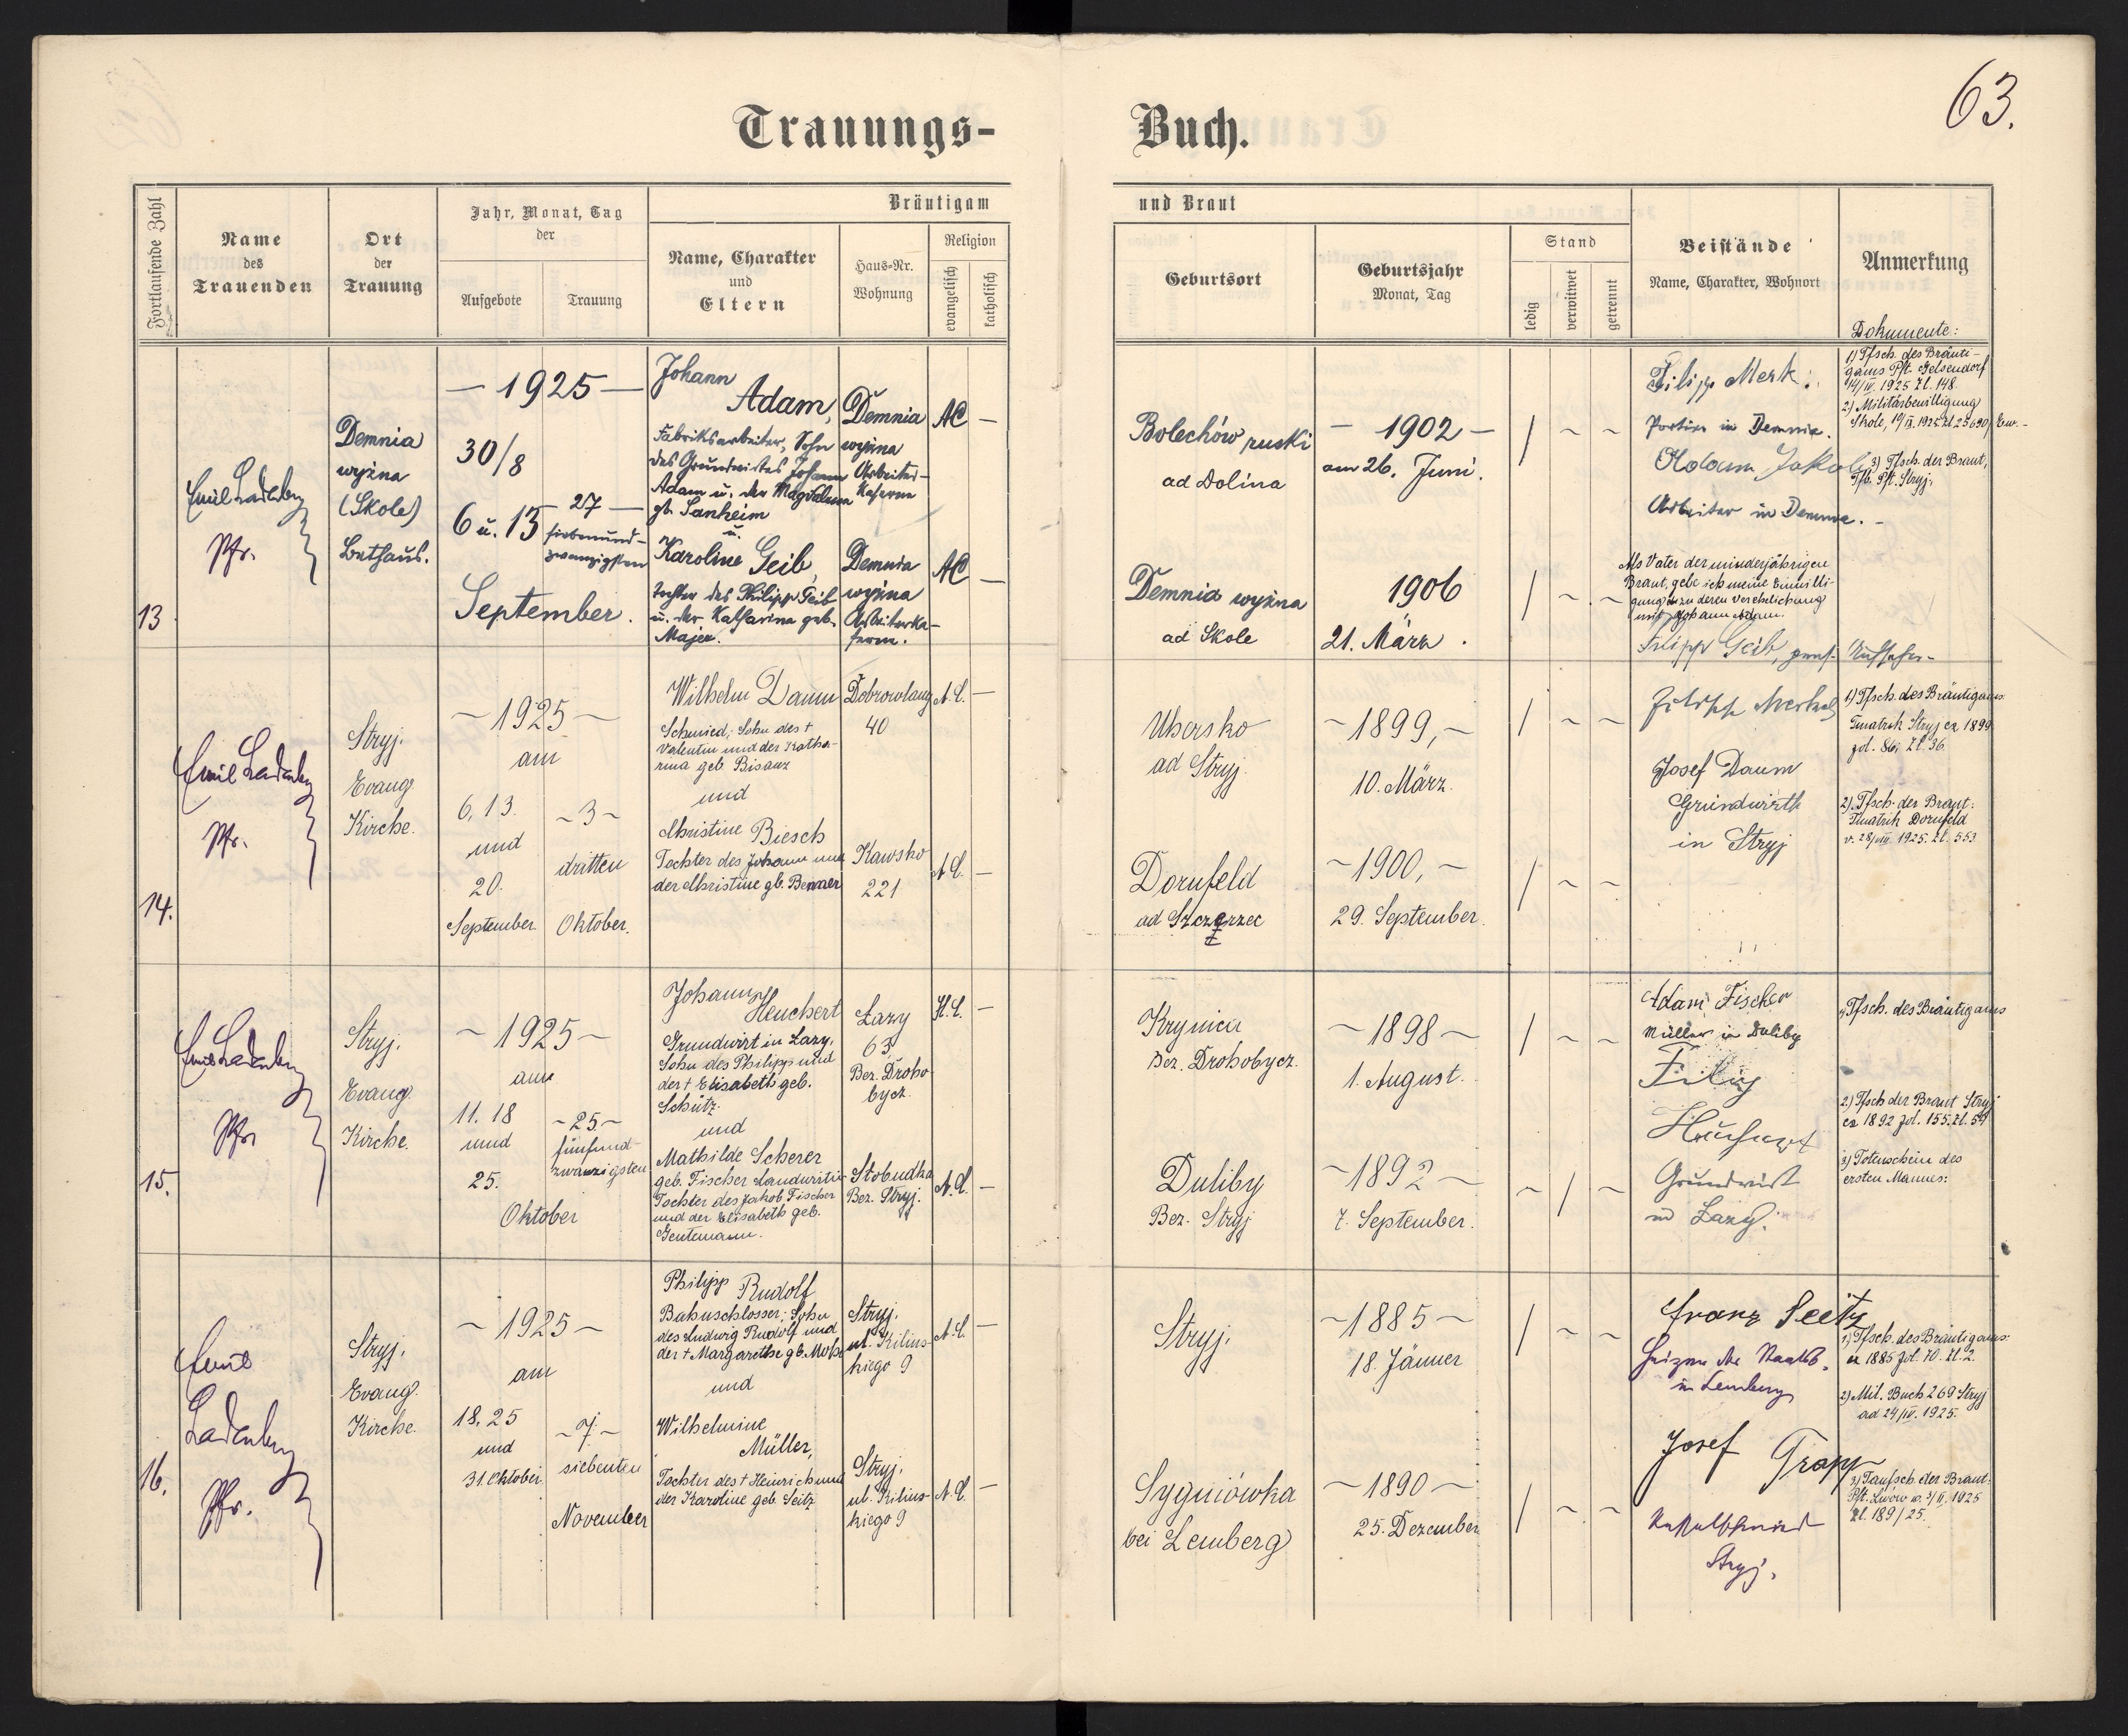 63.
Trauungs-
Buch.
Fortlaufende Zahl
Name
des
Trauenden
Ort
der
Trauung
Jahr, Monat, Tag
der
Aufgebote
Trauung
Bräutigam
Name, Charakter
und
Eltern
Haus-Nr.
Wohnung
Religion
evangelisch
katholisch
und Braut
Geburtsort
Geburtsjahr
Monat, Tag
Stand
ledig
verwitwet
getrennt
Beistände
Name, Charakter, Wohnort
Anmerkung
13.
Emil Ladenberg
Pfr.
Demnia
wyżna
(Skole)
Bethaus.
— 1925 —
30/8
6 u. 13
September.
27 —
siebenund-
zwanzigsten
Johann
Adam,
Fabriksarbeiter, Sohn
des Grundwirtes Johann
Adam u. der Magdalena
gb. Sanheim
u.
Karoline Geib,
Tochter des Philipp Geib
u. der Katharina geb.
Majer.
Demnia
wyżna
Arbeiter-
Kaserne
Demnia
wyżna
Arbeiterka-
serne.
AC —
AC —
Bolechów ruski
ad Dolina
Demnia wyżna
ad Skole
— 1902 —
am 26. Juni.
1906
21. März.
Filipp Merk:
Portier in Demnia.
Adam Jakob
Arbeiter in Demnia.
Als Vater der minderjährigen
Braut, gebe ich meine Einwilli-
gung zu deren Verehelichung
mit Johann Adam.
Filipp Geib, pens. Aufseher
Dokumente:
1) Tfsch. des Bräuti-
gams Pft. Gelsendorf
14/IX. 1925 Zl. 148.
2) Militärbewilligung
Skole, 19/IX. 1925 Zl. 25690/Ew.-
3) Tfsch. der Braut,
Tfb. Pft. Stryj.
14.
Emil Ladenberg
Pfr.
Stryj.
Evang.
Kirche.
~ 1925 ~
am
6, 13.
und
20.
September.
~ 3 ~
dritten
Oktober.
Wilhelm Daum
Schmied; Sohn des †
Valentin und der Katha-
rina geb. Bisanz
und
Christine Biesch
Tochter des Johann und
der Christine gb. Benner
Dobrowlany
40
Kawsko
221
A.C. —
A.C. —
Uhersko
ad Stryj.
Dornfeld
ad Szczerzec
~ 1899, ~
10. März.
~ 1900, ~
29. September.
Filipp Merkel
Josef Daum
Grundwirth
in Stryj
1) Tfsch. des Bräutigams
Tmatrik Stryj ex 1899
fol. 86; Zl. 36.
2) Tfsch. der Braut:
Tmatrik Dornfeld
v. 28/VIII. 1925. Zl. 553.
15.
Emil Ladenberg
Pfr.
Stryj.
Evang.
Kirche.
~ 1925 ~
am
11. 18
und
25.
Oktober
~ 25 ~
fünfund-
zwanzigsten
Johann
Heuchert
Grundwirt in Łazy,
Sohn des Philipp und
der † Elisabeth geb.
Schütz.
und
Mathilde Scherer
geb. Fischer Landwirtin
Tochter des Jakob Fischer
und der Elisabeth geb.
Gentemann.
Łazy
63.
Bez. Droho-
bycz.
Stobudka
Bez. Stryj.
H.C. —
A.C. —
Krynica
Bez. Drohobycz.
Duliby
Bez. Stryj
~ 1898 ~
1. August.
~ 1892 ~
7. September.
Adam Fischer
Müller in Duliby
Filip
Heuchert
Grundwirt
in Łazy.
1) Tfsch. des Bräutigams
2) Tfsch. der Braut Stryj
ex 1892 fol. 155. Zl. 54
3) Totenschein des
ersten Mannes:
16.
Emil
Ladenberg
Pfr.
Stryj.
Evang.
Kirche.
~ 1925 ~
am
18. 25
und
31. Oktober.
~ 7. ~
siebenten
November
Philipp Rudolf
Bahnschlosser; Sohn
des Ludwig Rudolf und
der † Margarethe gb. Mohr
und
Wilhelmine
Müller,
Tochter des † Heinrich und
der Karoline geb. Seitz
Stryj.
ul. Kilins-
kiego 9
Stryj.
ul. Kilins-
kiego 9
A.C. —
A.C. —
Stryj.
Sygniówka
bei Lemberg
~ 1885 ~
18. Jänner
~ 1890 ~
25. Dezember
Franz Seitz
Heizer der Staatsb.
in Lemberg
Josef Trapp
Kesselschmied
Stryj.
1) Tfsch. des Bräutigams:
ex 1885 fol. 70. Zl. 2.
2) Mil. Buch 269 Stryj
ad 24/IV. 1925.
3) Taufsch. der Braut:
Pft. Lwów v. 3/II. 1925
Zl. 189/25.